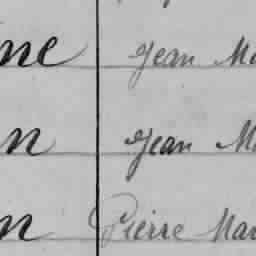 ne Jean Ma
n Jean Ma
n Pierre Mar